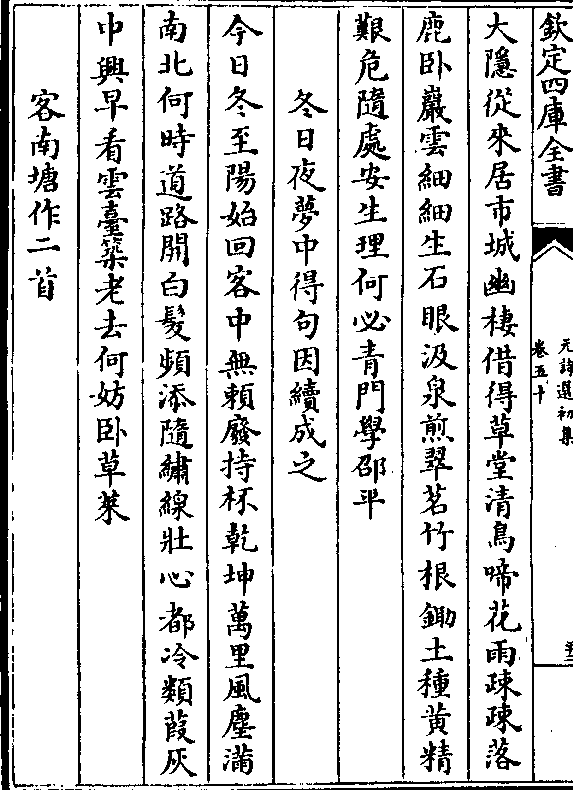 欽定四庫全書
元詩選初集
卷五十
大隱從來居市城幽棲借得草堂清鳥啼花雨疎疎落
鹿卧巖雲細細生石眼汲泉煎翠茗竹根鋤土種黄精
艱危隨處安生理何必青門學邵平
冬日夜夢中得句因續成之
今日冬至陽始回客中無頼廢持杯乾坤萬里風塵滿
南北何時道路開白髮頻添隨繡線壯心都冷類葭灰
中興早看雲臺築老去何妨卧草萊
客南塘作二首